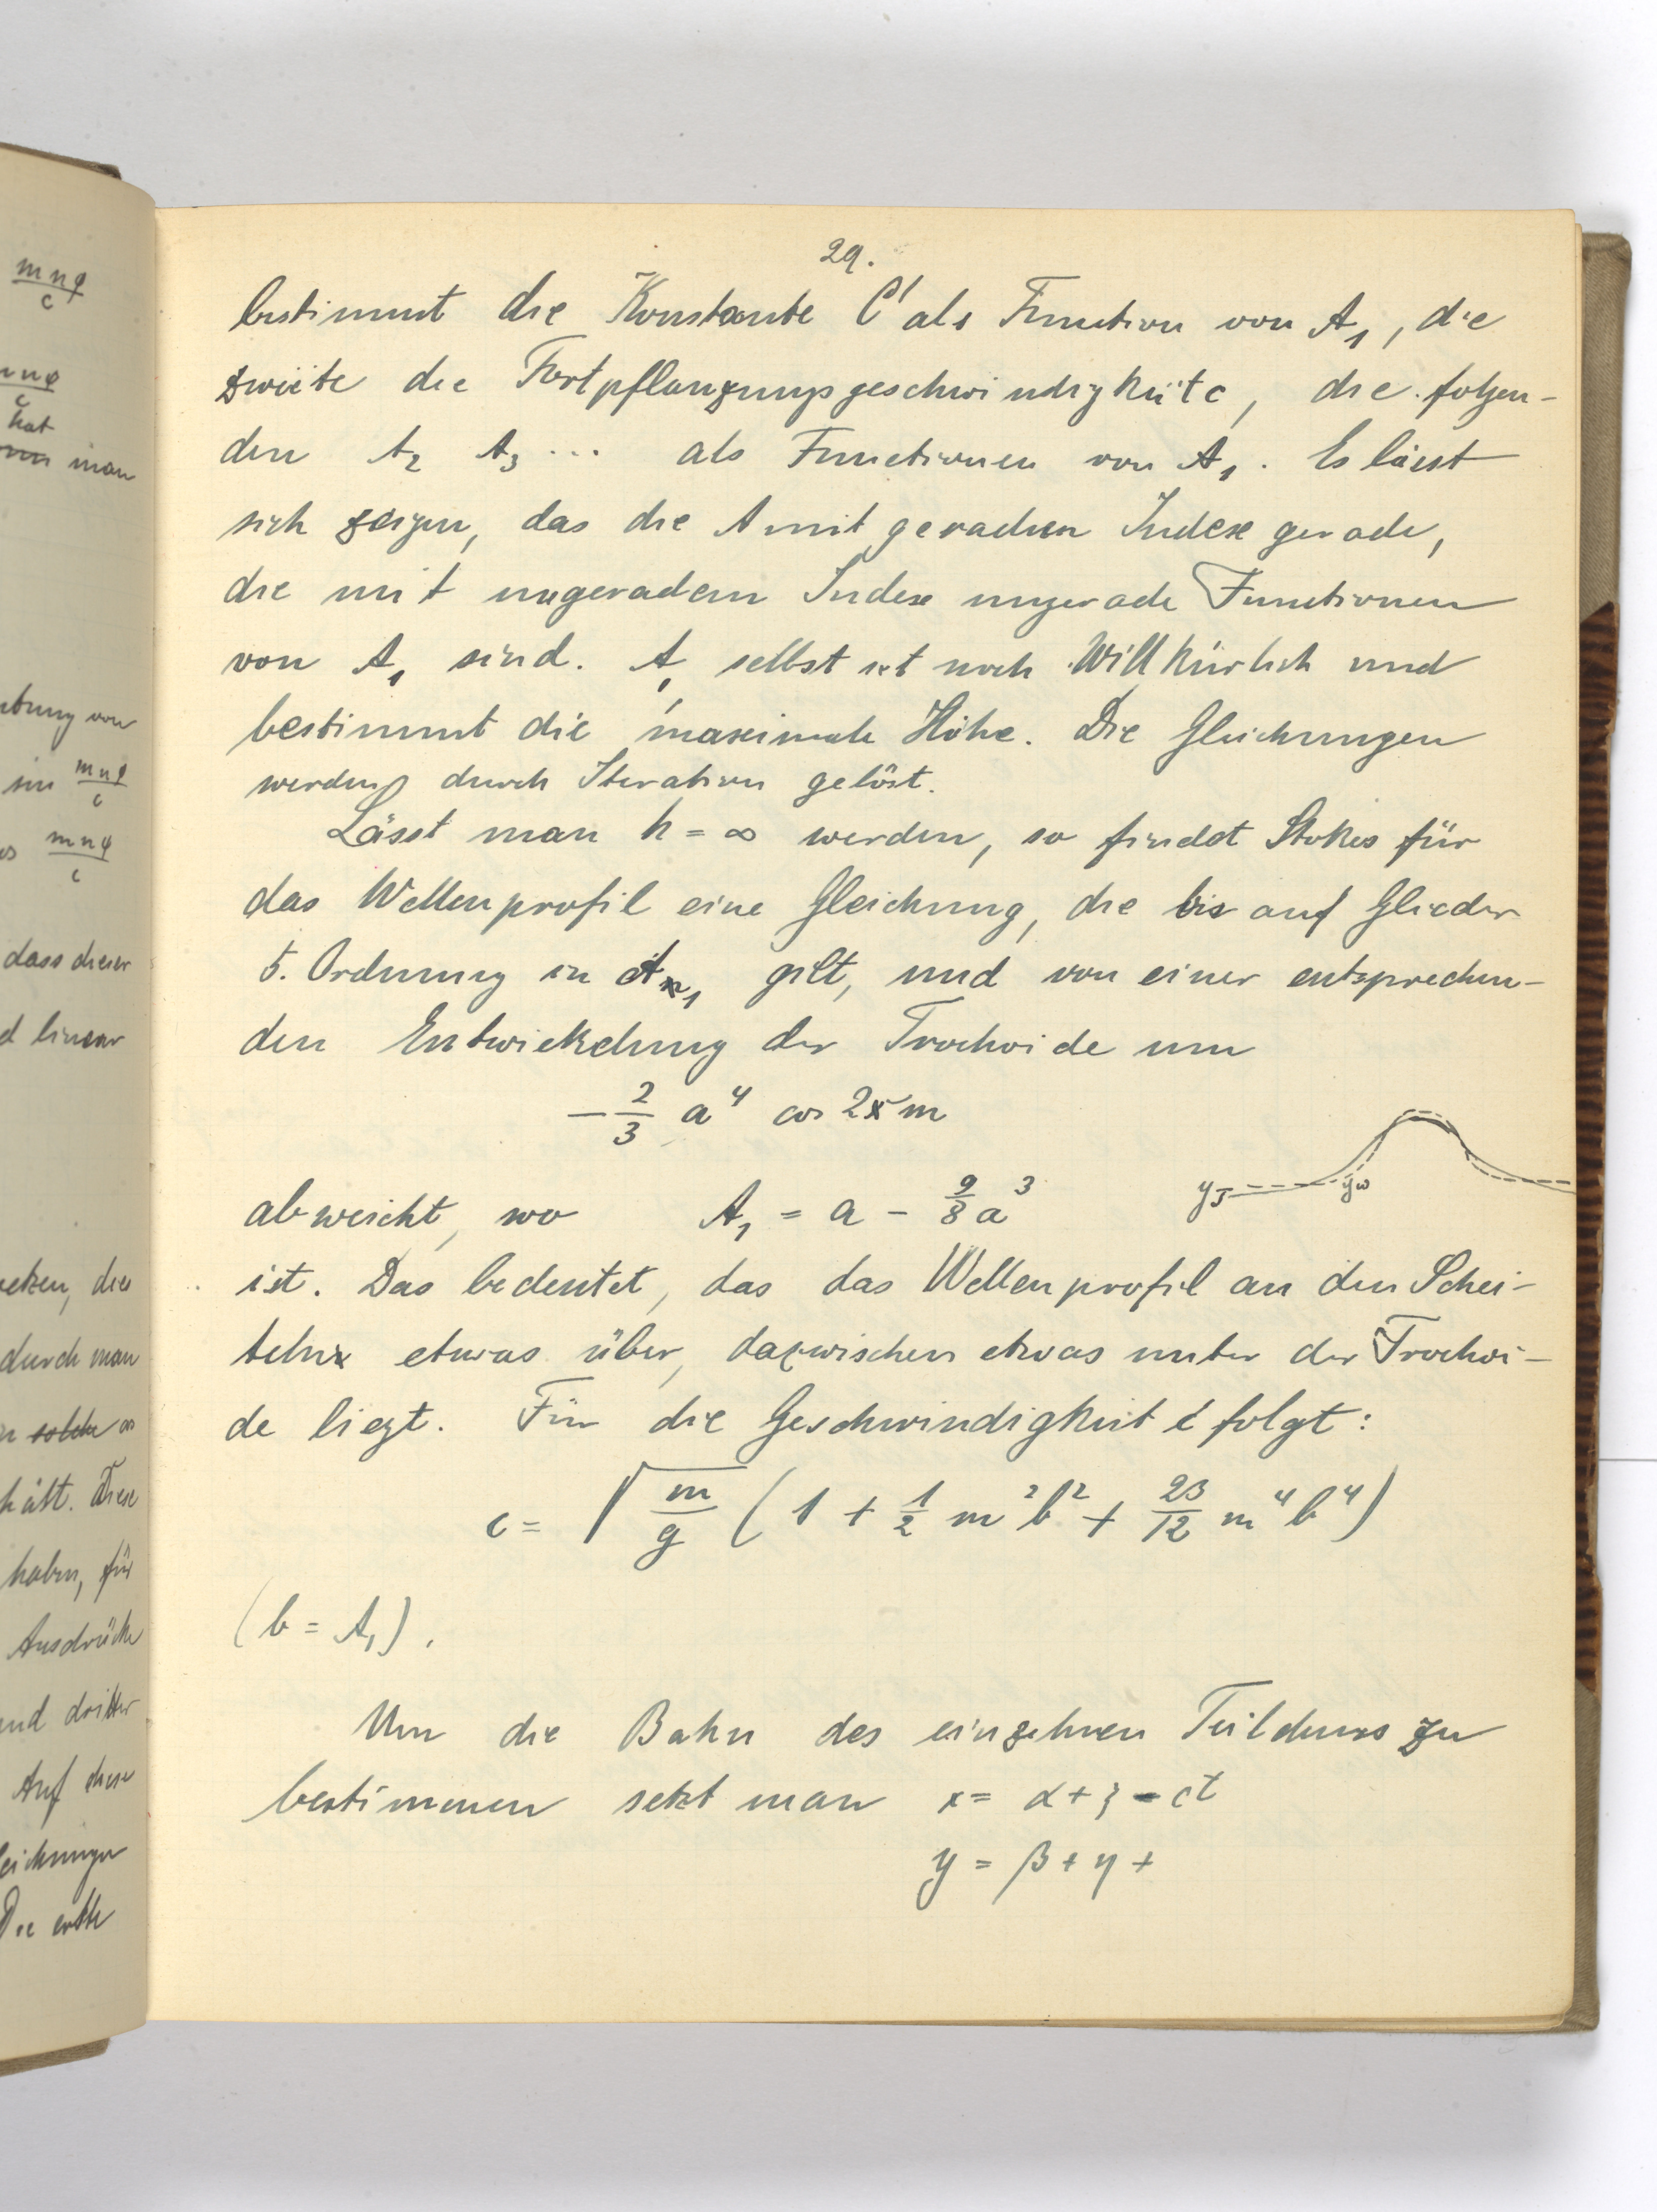 mnφ
c
mnφ
c
hat
man
sin mnφ
c
mnφ
c
dass dieser
linear
durch man
solche
hält. Diese
haben, für
Ausdrücke
und dritter
Auf diese
Die erste
29.
bestimmt die Konstante C' als Function von A₁, die
zweite die Fortpflanzungsgeschwindigkeit c, die folgen-
den A₂ A₃ ... als Functionen von A₁. Es lässt
sich zeigen, das die A mit geradem Index gerade,
die mit ungeradem Index ungerade Functionen
von A₁ sind. A₁ selbst ist noch Willkürlich und
bestimmt die maximale Höhe. Die Gleichungen
werden durch Iteration gelöst.
Lässt man h = ∞ werden, so findet Stokes für
das Wellenprofil eine Gleichung, die bis auf Glieder
5. Ordnung in A₁ gilt, und von einer entsprechen-
den Entwickelung der Trochoide um
- 2/3 a⁴ cos 2xm
abweicht, wo A₁ = a - 9/8 a³
ist. Das bedeutet, das das Wellenprofil an den Schei-
teln etwas über, dazwischen etwas unter der Trochoi-
de liegt. Für die Geschwindigkeit c folgt:
c = √m/g (1 + 1/2 m²b² + 23/12 m⁴b⁴)
(b = A₁).
Um die Bahn des einzelnen Teilchens zu
bestimmen setzt man x = α + ξ - ct
y = β + η +